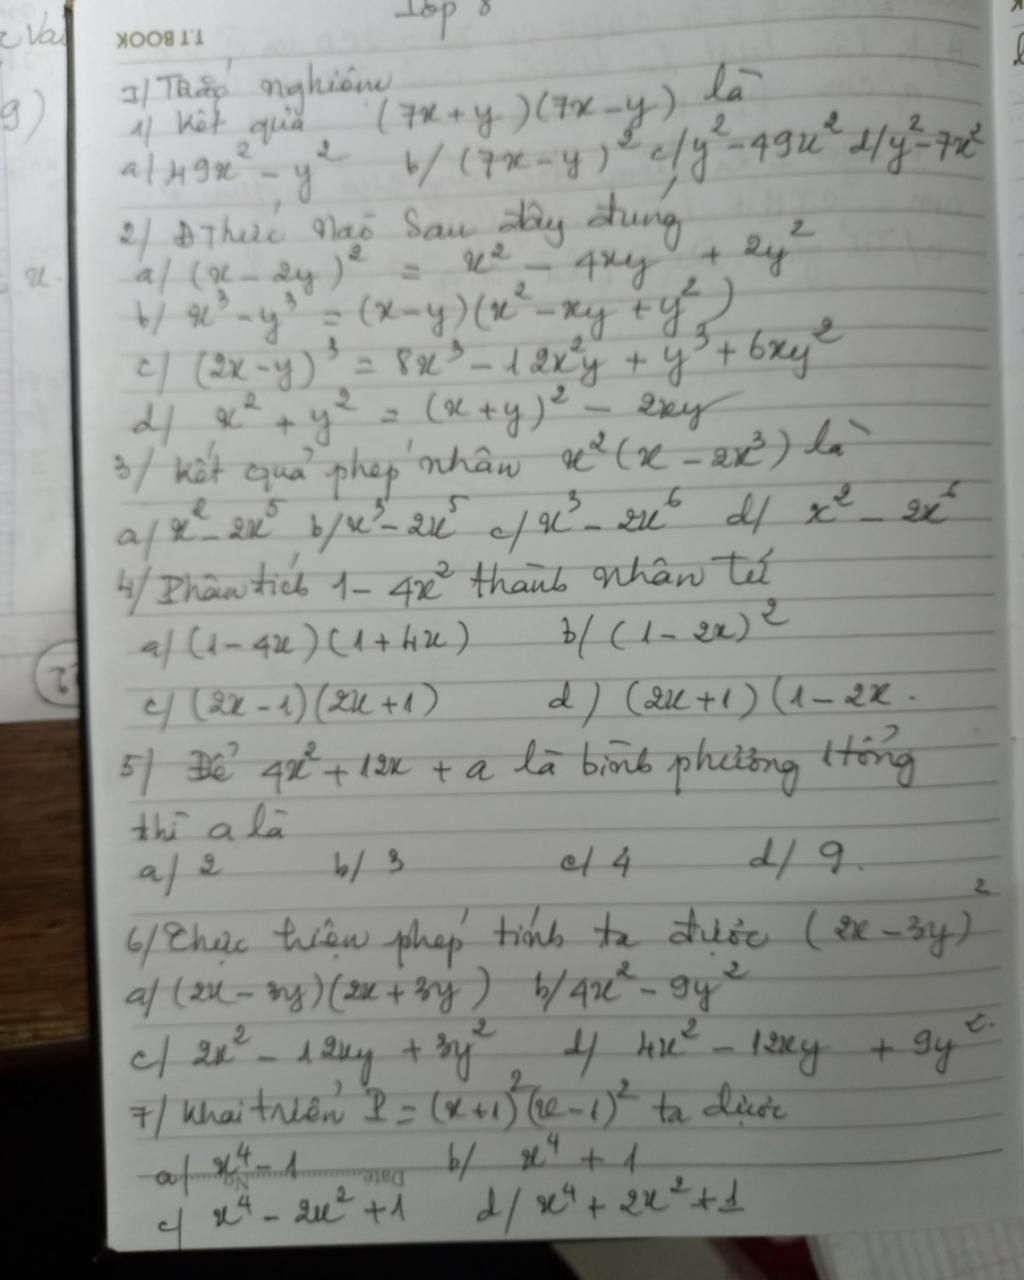 Lớp 8
T.T BOOK
I/ Trắc nghiệm
1) Kết quả (7x + y)(7x - y) là
a) 49x² - y² b/ (7x - y)² c/ y² - 49x² d/ y² - 7x²
2) Đ Thức nào sau đây đúng
a/ (x - 2y)² = x² - 4xy + 2y²
b) x³ - y³ = (x - y)(x² - xy + y²)
c) (2x - y)³ = 8x³ - 12x²y + y³ + 6xy²
d) x² + y² = (x + y)² - 2xy
3/ Kết quả phép nhân x²(x - 2x³) là
a/ x² - 2x⁵ b/ x³ - 2x⁵ c/ x³ - 2x⁶ d/ x² - 2x⁶
4/ Phân tích 1 - 4x² thành nhân tử
a/ (1 - 4x)(1 + 4x) b/ (1 - 2x)²
c/ (2x - 1)(2x + 1) d) (2x + 1)(1 - 2x.
5) Để 4x² + 12x + a là bình phương tổng
thì a là
a/ 2 b/ 3 c/ 4 d/ 9.
6/ Thực hiện phép tính ta được (2x - 3y)²
a/ (2x - 3y)(2x + 3y) b/ 4x² - 9y²
c/ 2x² - 12xy + 3y² d/ 4x² - 12xy + 9y².
7/ Khai triển P = (x + 1)²(x - 1)² ta được
a/ x⁴ - 1 b/ x⁴ + 1
No. Date
c/ x⁴ - 2x² + 1 d/ x⁴ + 2x² + 1